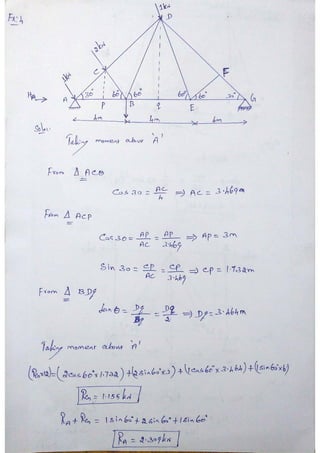 Ex:4
1kN
D
2kN
C
F
1kN
HA
A
30°
60°
60°
60°
60°
30°
G
P
B
Q
E
4m
4m
4m
Soln:
Taking moment about 'A'
From Δ ACB
Cos 30 = AC/4 => AC = 3.469m
From Δ ACP
Cos 30 = AP/AC = AP/3.469 => AP = 3m
Sin 30 = CP/AC = CP/3.469 => CP = 1.732m
From Δ BDQ
tan θ = DQ/BQ = DQ/2 => DQ = 3.464m
Taking moment about 'A'
(RG×12) = (2cos60°×1.732) + (2sin60°×3) + (1cos60°×3.464) + (1sin60°×6)
RG = 1.155kN
RA + RG = 1sin60° + 2sin60° + 1sin60°
RA = 2.309kN